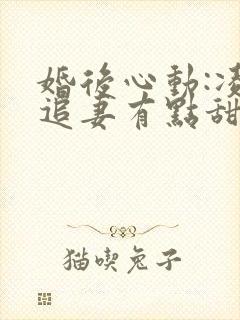 婚後心動:凌
追妻有點甜
猫喫兔子